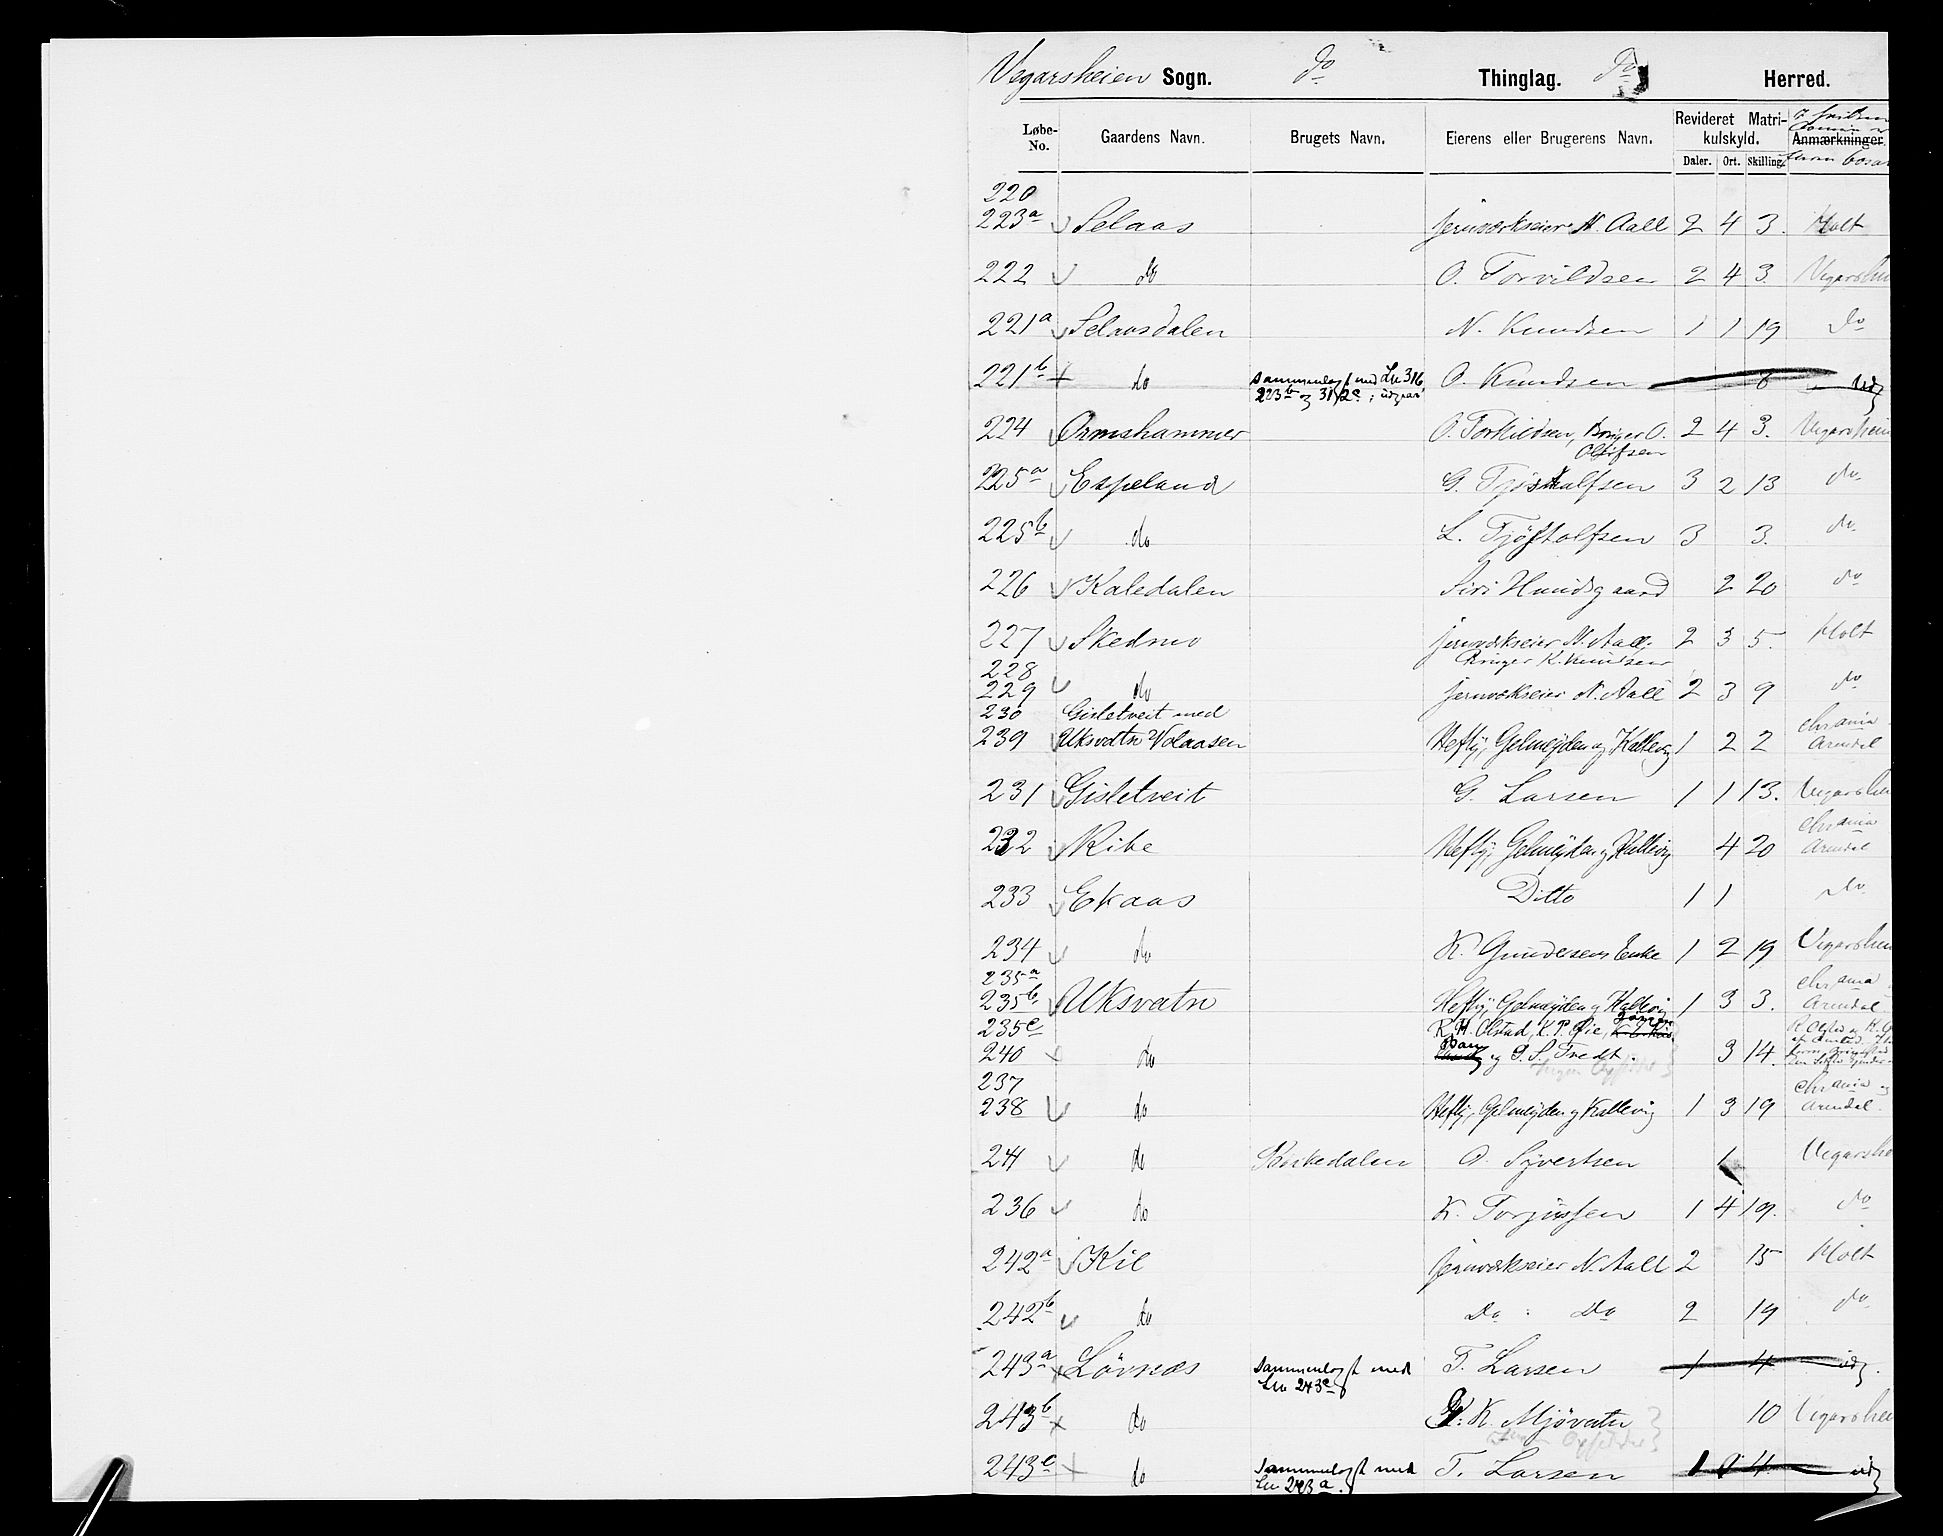 Vegarsheien Sogn. do Thinglag. do Herred.
Løbe-No. Gaardens Navn. Brugets Navn. Eierens eller Brugerens Navn. Revideret Matrikulskyld. Anmærkninger.
Daler. Ort. Skilling.
220
223a Selaas Jernværkseier N. Aall 2 4 3. Holt
222 do O. Torvildsen 2 4 3. Vegarshei
221a Selaasdalen N. Knudsen 1 1 19 do
221b do sammenlagt med Ln 316, O. Knudsen 6 udg
223b og 312c; udgaar
224 Ormshammer O. Torkildsen, Bruger O. 2 4 3. Vegarshei
Olsen
225a Espeland G. Tjöstolfsen 3 2 13 do
225b do L. Tjöstolfsen 3 3. do
226 Kaledalen Siri Hundsgaard 2 20 do
227 Skedmo Jernværkseier N. Aall, 2 3 5. Holt
Bruger K. Knudsen
228
229 do Jernværkseier N. Aall 2 3 9 do
230 Gisletveit med Chrania
239 Uksvatn Volaasen Heftÿ, Gelmeÿden og Kallevig 1 2 2 Arendal
231 Gisletveit G. Larsen 1 1 13. Vegarshei
Chrania
232 Ribe Heftÿ, Gelmeÿden og Kallevig 4 20 Arendal
233 Ekaas Ditto 1 1 do
234 do K. Gundersens Enke 1 2 19 Vegarshei
235a Chrania
235b Uksvatn Heftÿ, Gelmeÿden og Kallevig 1 3 3. Arendal
235c R. H. Olstad, K. P. Øie,
240 do og O. S. Tredt. 3 14.
237 Chrania og
238 do Heftÿ, Gelmeÿden og Kallevig 1 3 19 Arendal.
241 do Birkedalen O. Syvertsen 1 Vegarshe
236 do K. Torjussen 1 4 19. do
242a Kil Jernværkseier N. Aall 2 15 Holt
242b do Do : Do 2 19 do
243a Lövnæs sammenlagt med T. Larsen 1 4 udg.
Ln 243c
243b do K. Mjövatn 10 Vegarshei
243c do sammenlagt med T. Larsen 1 0 4 udg
Ln 243a.